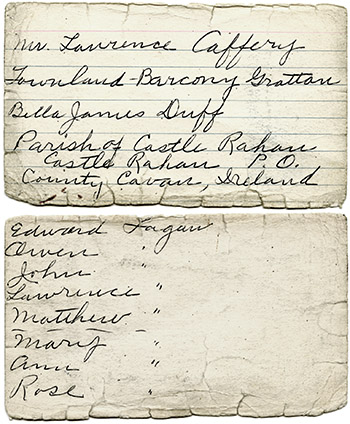 Mr. Lawrence Caffery
Townland-Barcony Grattan
Bella James Duff
Parish of Castle Rahan
Castle Rahan P.O.
County Cavan, Ireland
Edward Fagan
Owen "
John "
Lawrence "
Matthew "
Mary "
Ann "
Rose "